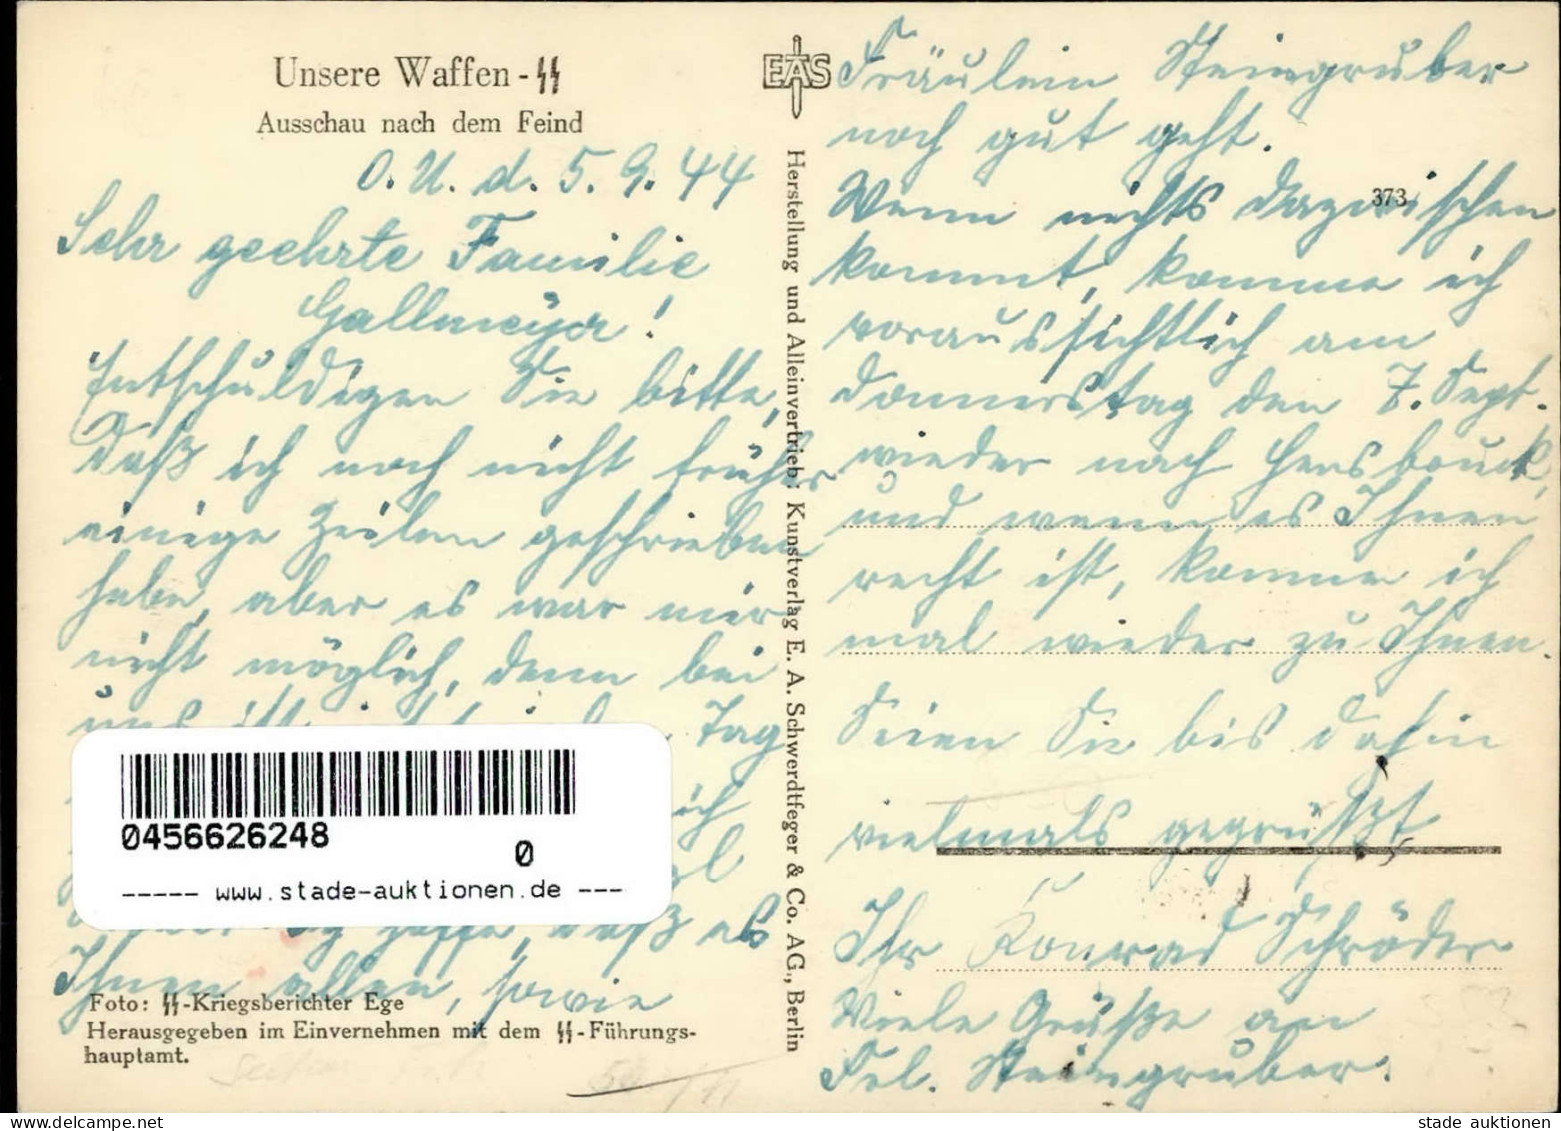 Unsere Waffen-SS
Ausschau nach dem Feind
O.U. d. 5.9.44
Sehr geehrte Familie
Gallmeyer!
Entschuldigen Sie bitte,
daß ich noch nicht früher
einige Zeilen geschrieben
habe, aber es war mir
nicht möglich, denn bei
uns ist Tag
ich
hoffe, daß es
Ihnen allen, sowie
Foto: SS-Kriegsberichter Ege
Herausgegeben im Einvernehmen mit dem SS-Führungs-
hauptamt.
0456626248
0
----- www.stade-auktionen.de ---
EAS
Herstellung und Alleinvertrieb: Kunstverlag E. A. Schwerdtfeger & Co. AG., Berlin
373
Fräulein Steingruber
noch gut geht.
Wenn nichts dazwischen
kommt, komme ich
voraussichtlich am
Donnerstag den 7. Sept.
wieder nach Hersbruck,
und wenn es Ihnen
recht ist, komme ich
mal wieder zu Ihnen.
Seien Sie bis dahin
vielmals gegrüßt
Ihr Konrad Schröder
Viele Grüße an
Frl. Steingruber.
stade auktionen